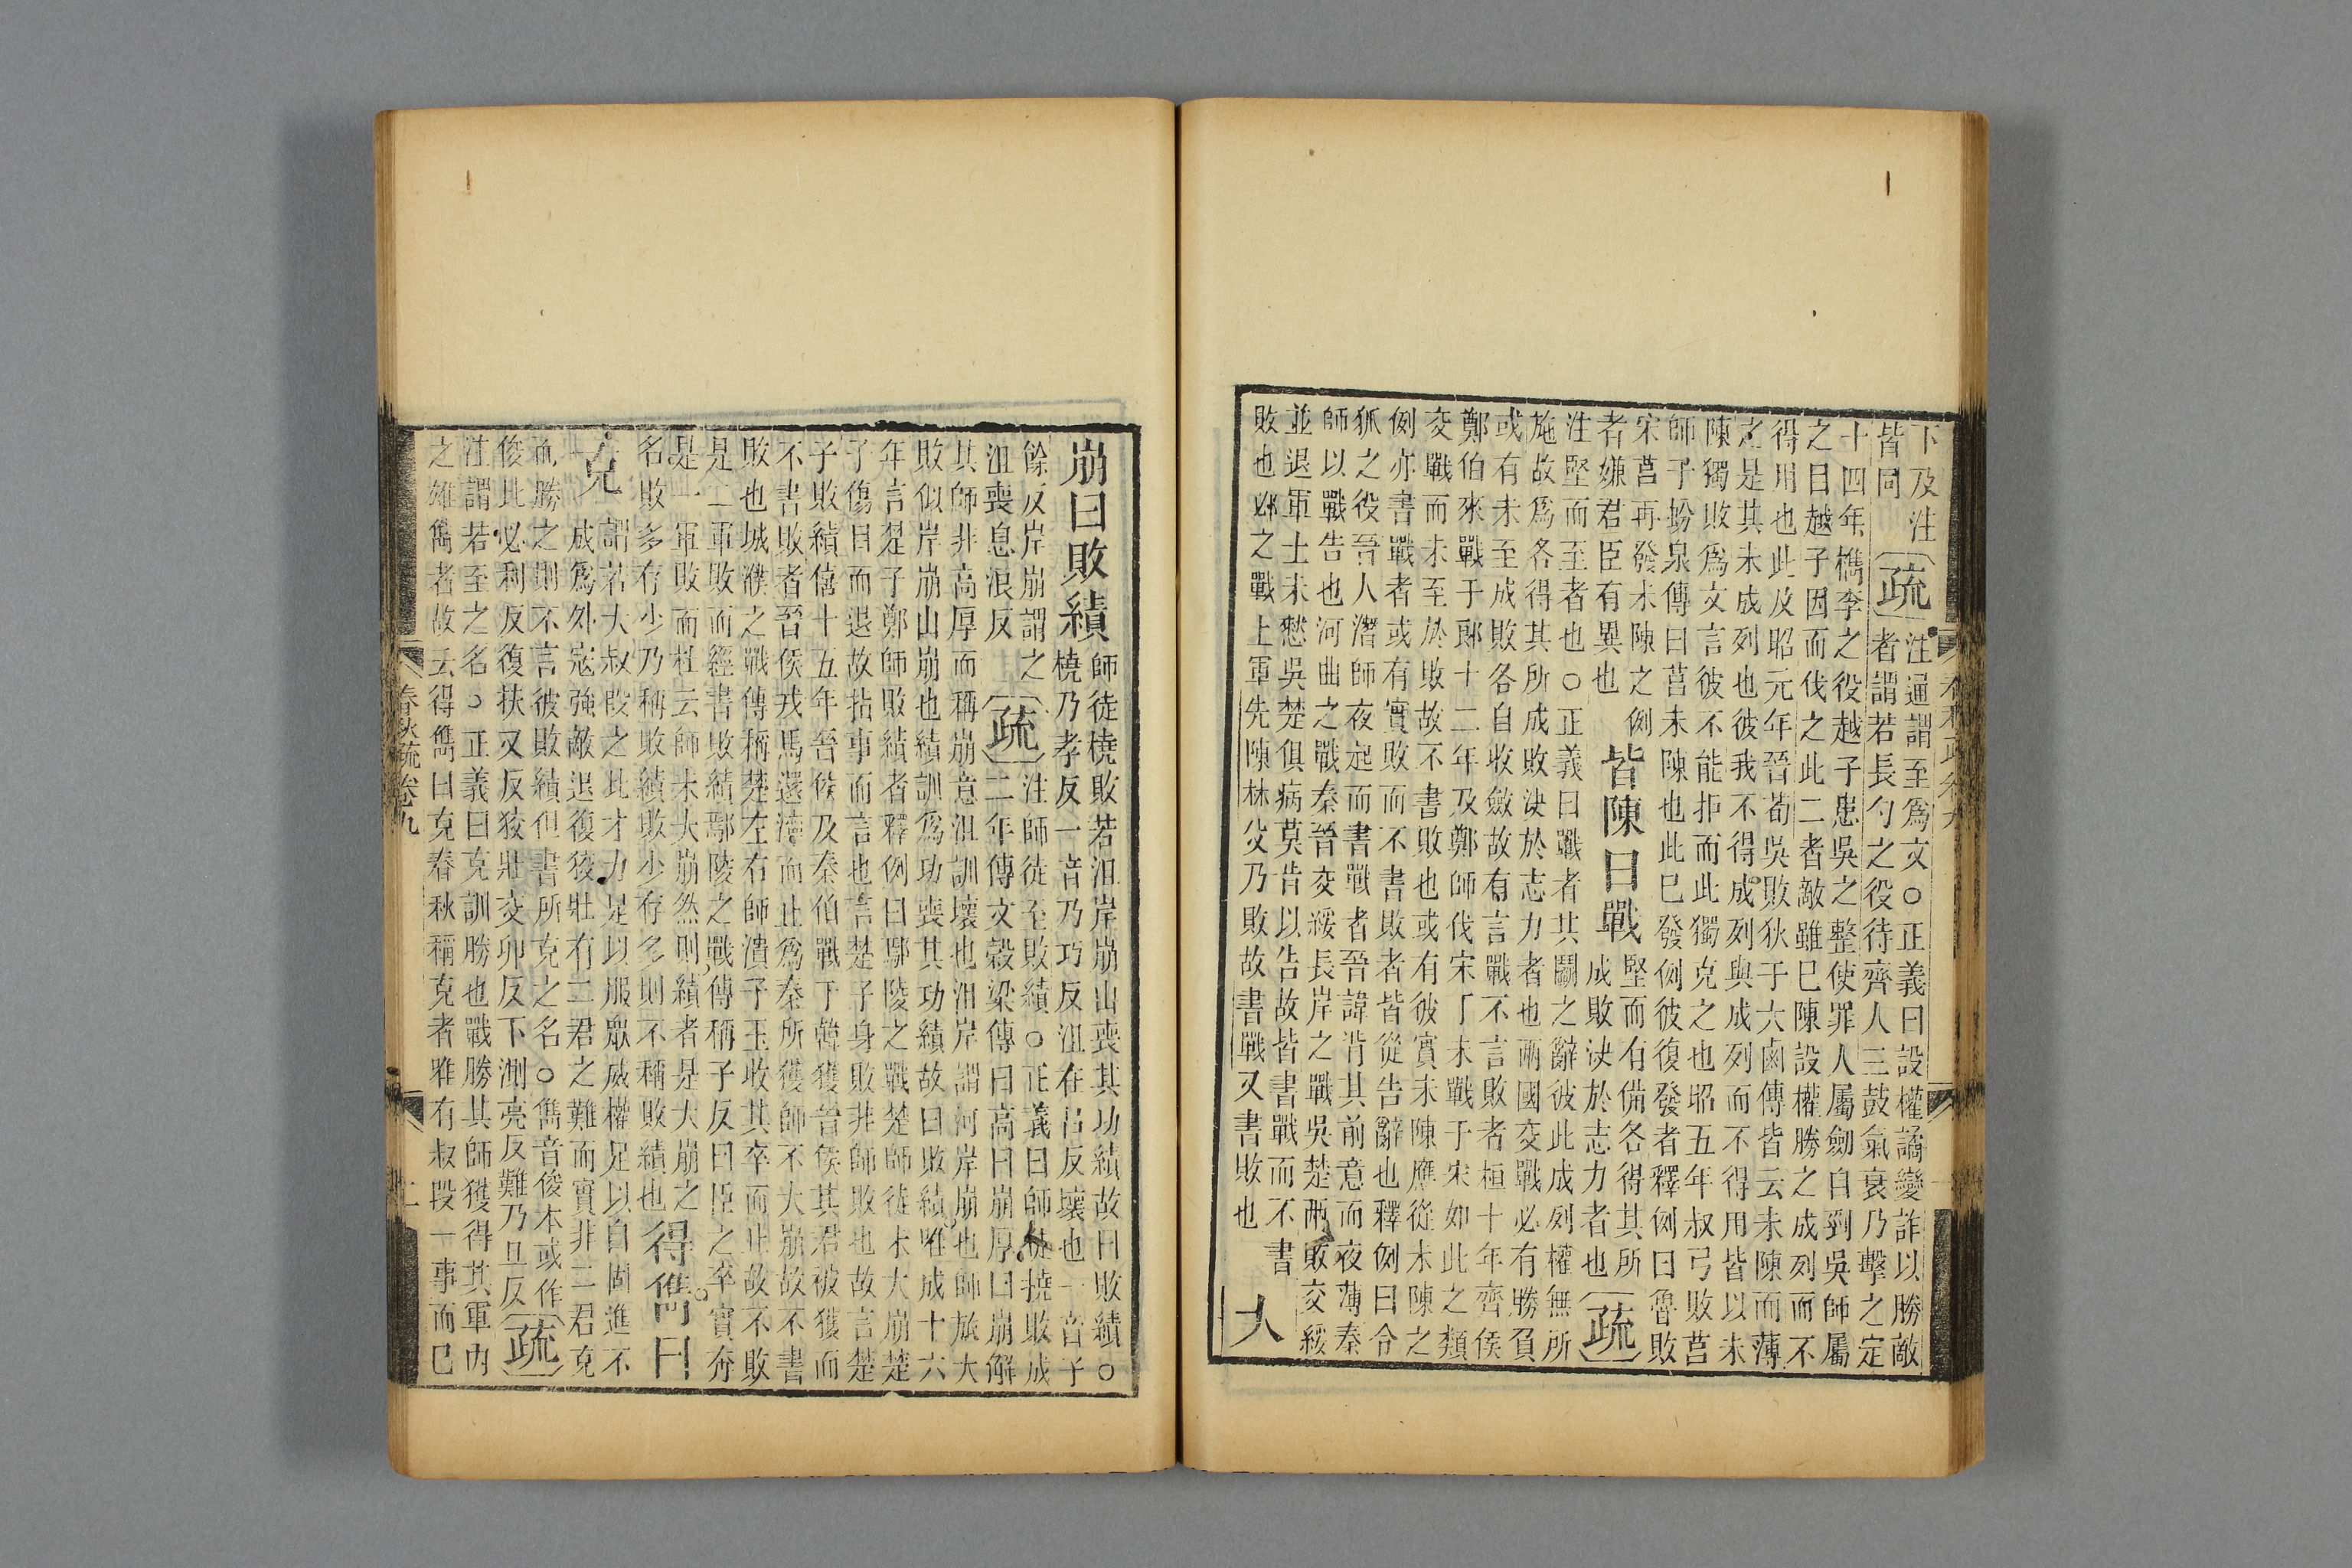 下及注
皆同
疏
注通謂至爲文○正義曰設權譎變詐以勝敵
者謂若長勺之役待齊人三鼓氣衰乃擊之定
十四年檇李之役越子患吳之整使罪人屬劒自剄吳師屬
之目越子因而伐之此二者敵雖已陳設權勝之成列而不
得用也此及昭元年晉荀吳敗狄于大鹵傳皆云未陳而薄
之是其未成列也彼我不得成列與成列而不得用皆以未
陳獨敗爲文言彼不能拒而此獨克之也昭五年叔弓敗莒
師于蚡泉傳曰莒未陳也此已發例彼復發者釋例曰魯敗
宋莒再發未陳之例
者嫌君臣有異也
皆陳曰戰
堅而有備各得其所
成敗決於志力者也
疏
注堅而至者也○正義曰戰者共鬬之辭彼此成列權無所
施故爲各得其所成敗決於志力者也兩國交戰必有勝負
或有未至成敗各自收斂故有言戰不言敗者桓十年齊侯
鄭伯來戰于郎十二年及鄭師伐宋丁未戰于宋如此之類
交戰而未至於敗故不書敗也或有彼實未陳應從未陳之
例亦書戰者或有實敗而不書敗者皆從告辭也釋例曰令
狐之役晉人潛師夜起而書戰者晉諱背其前意而夜薄秦
師以戰告也河曲之戰秦晉交綏長岸之戰吳楚兩敗交綏
並退軍士未憖吳楚俱病莫告以告故皆書戰而不書
敗也邲之戰上軍先陳林父乃敗故書戰又書敗也
大
崩曰敗績
師徒橈敗若沮岸崩山喪其功績故曰敗績○
橈乃孝反一音乃巧反沮在呂反壞也一音子
餘反岸崩謂之
沮喪息浪反
疏
注師徒至敗績○正義曰師徒撓敗成
二年傳文穀梁傳曰高曰崩厚曰崩解
其師非高厚而稱崩意沮訓壞也沮岸謂河岸崩也師旅大
敗似岸崩山崩也績訓爲功喪其功績故曰敗績唯成十六
年言楚子鄭師敗績者釋例曰鄢陵之戰楚師徒未大崩楚
子傷目而退故指事而言也言楚子身敗非師敗也故言楚
子敗績僖十五年晉侯及秦伯戰于韓獲晉侯其君被獲而
不書敗者晉侯戎馬還濘而止爲秦所獲師不大崩故不書
敗也城濮之戰傳稱楚左右師潰子玉收其卒而止故不敗
是二軍敗而經書敗績鄢陵之戰傳稱子反曰臣之卒實奔
是一軍敗而杜云師未大崩然則績者是大崩之
名敗多有少乃稱敗績敗少存多則不稱敗績也
得儁曰
克
謂若大叔段之比才力足以服眾威權足以自固進不
成爲外寇強敵退復狡壯有二君之難而實非二君克
而勝之則不言彼敗績但書所克之名○儁音俊本或作
俊比必利反復扶又反狡壯交卯反下測亮反難乃旦反
疏
注謂若至之名○正義曰克訓勝也戰勝其師獲得其軍內
之雄儁者故云得儁曰克春秋稱克者唯有叔段一事而已
春秋疏卷九